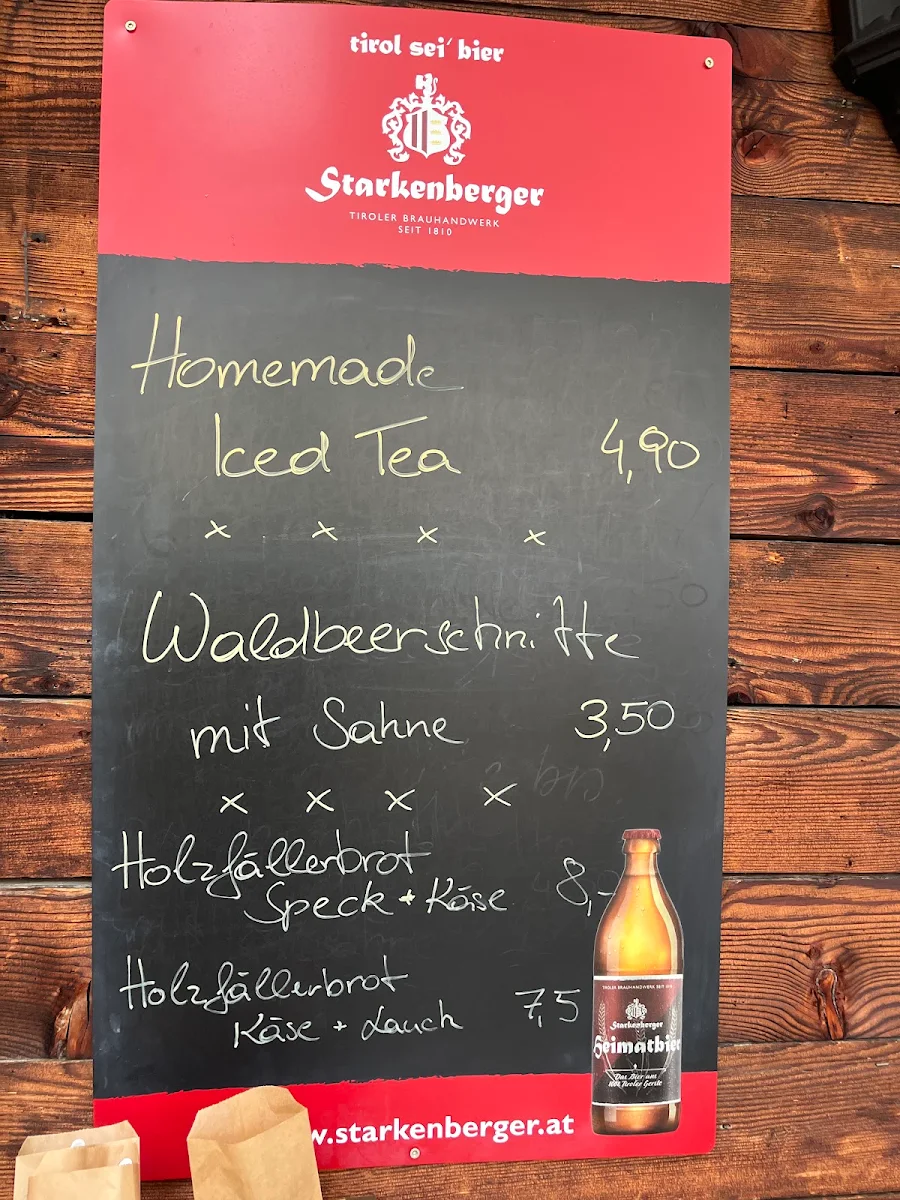 tirol sei' bier
Starkenberger
TIROLER BRAUHANDWERK
SEIT 1810
Homemade
Iced Tea 4,90
x x x x
Waldbeerschnitte
mit Sahne 3,50
x x x x
Holzfällerbrot
Speck + Käse 8,-
Holzfällerbrot
Käse + Lauch 7,5
TIROLER BRAUHANDWERK SEIT 1810
Starkenberger
Heimatbier
Das Bier aus
100% Tiroler Gerste
w.starkenberger.at